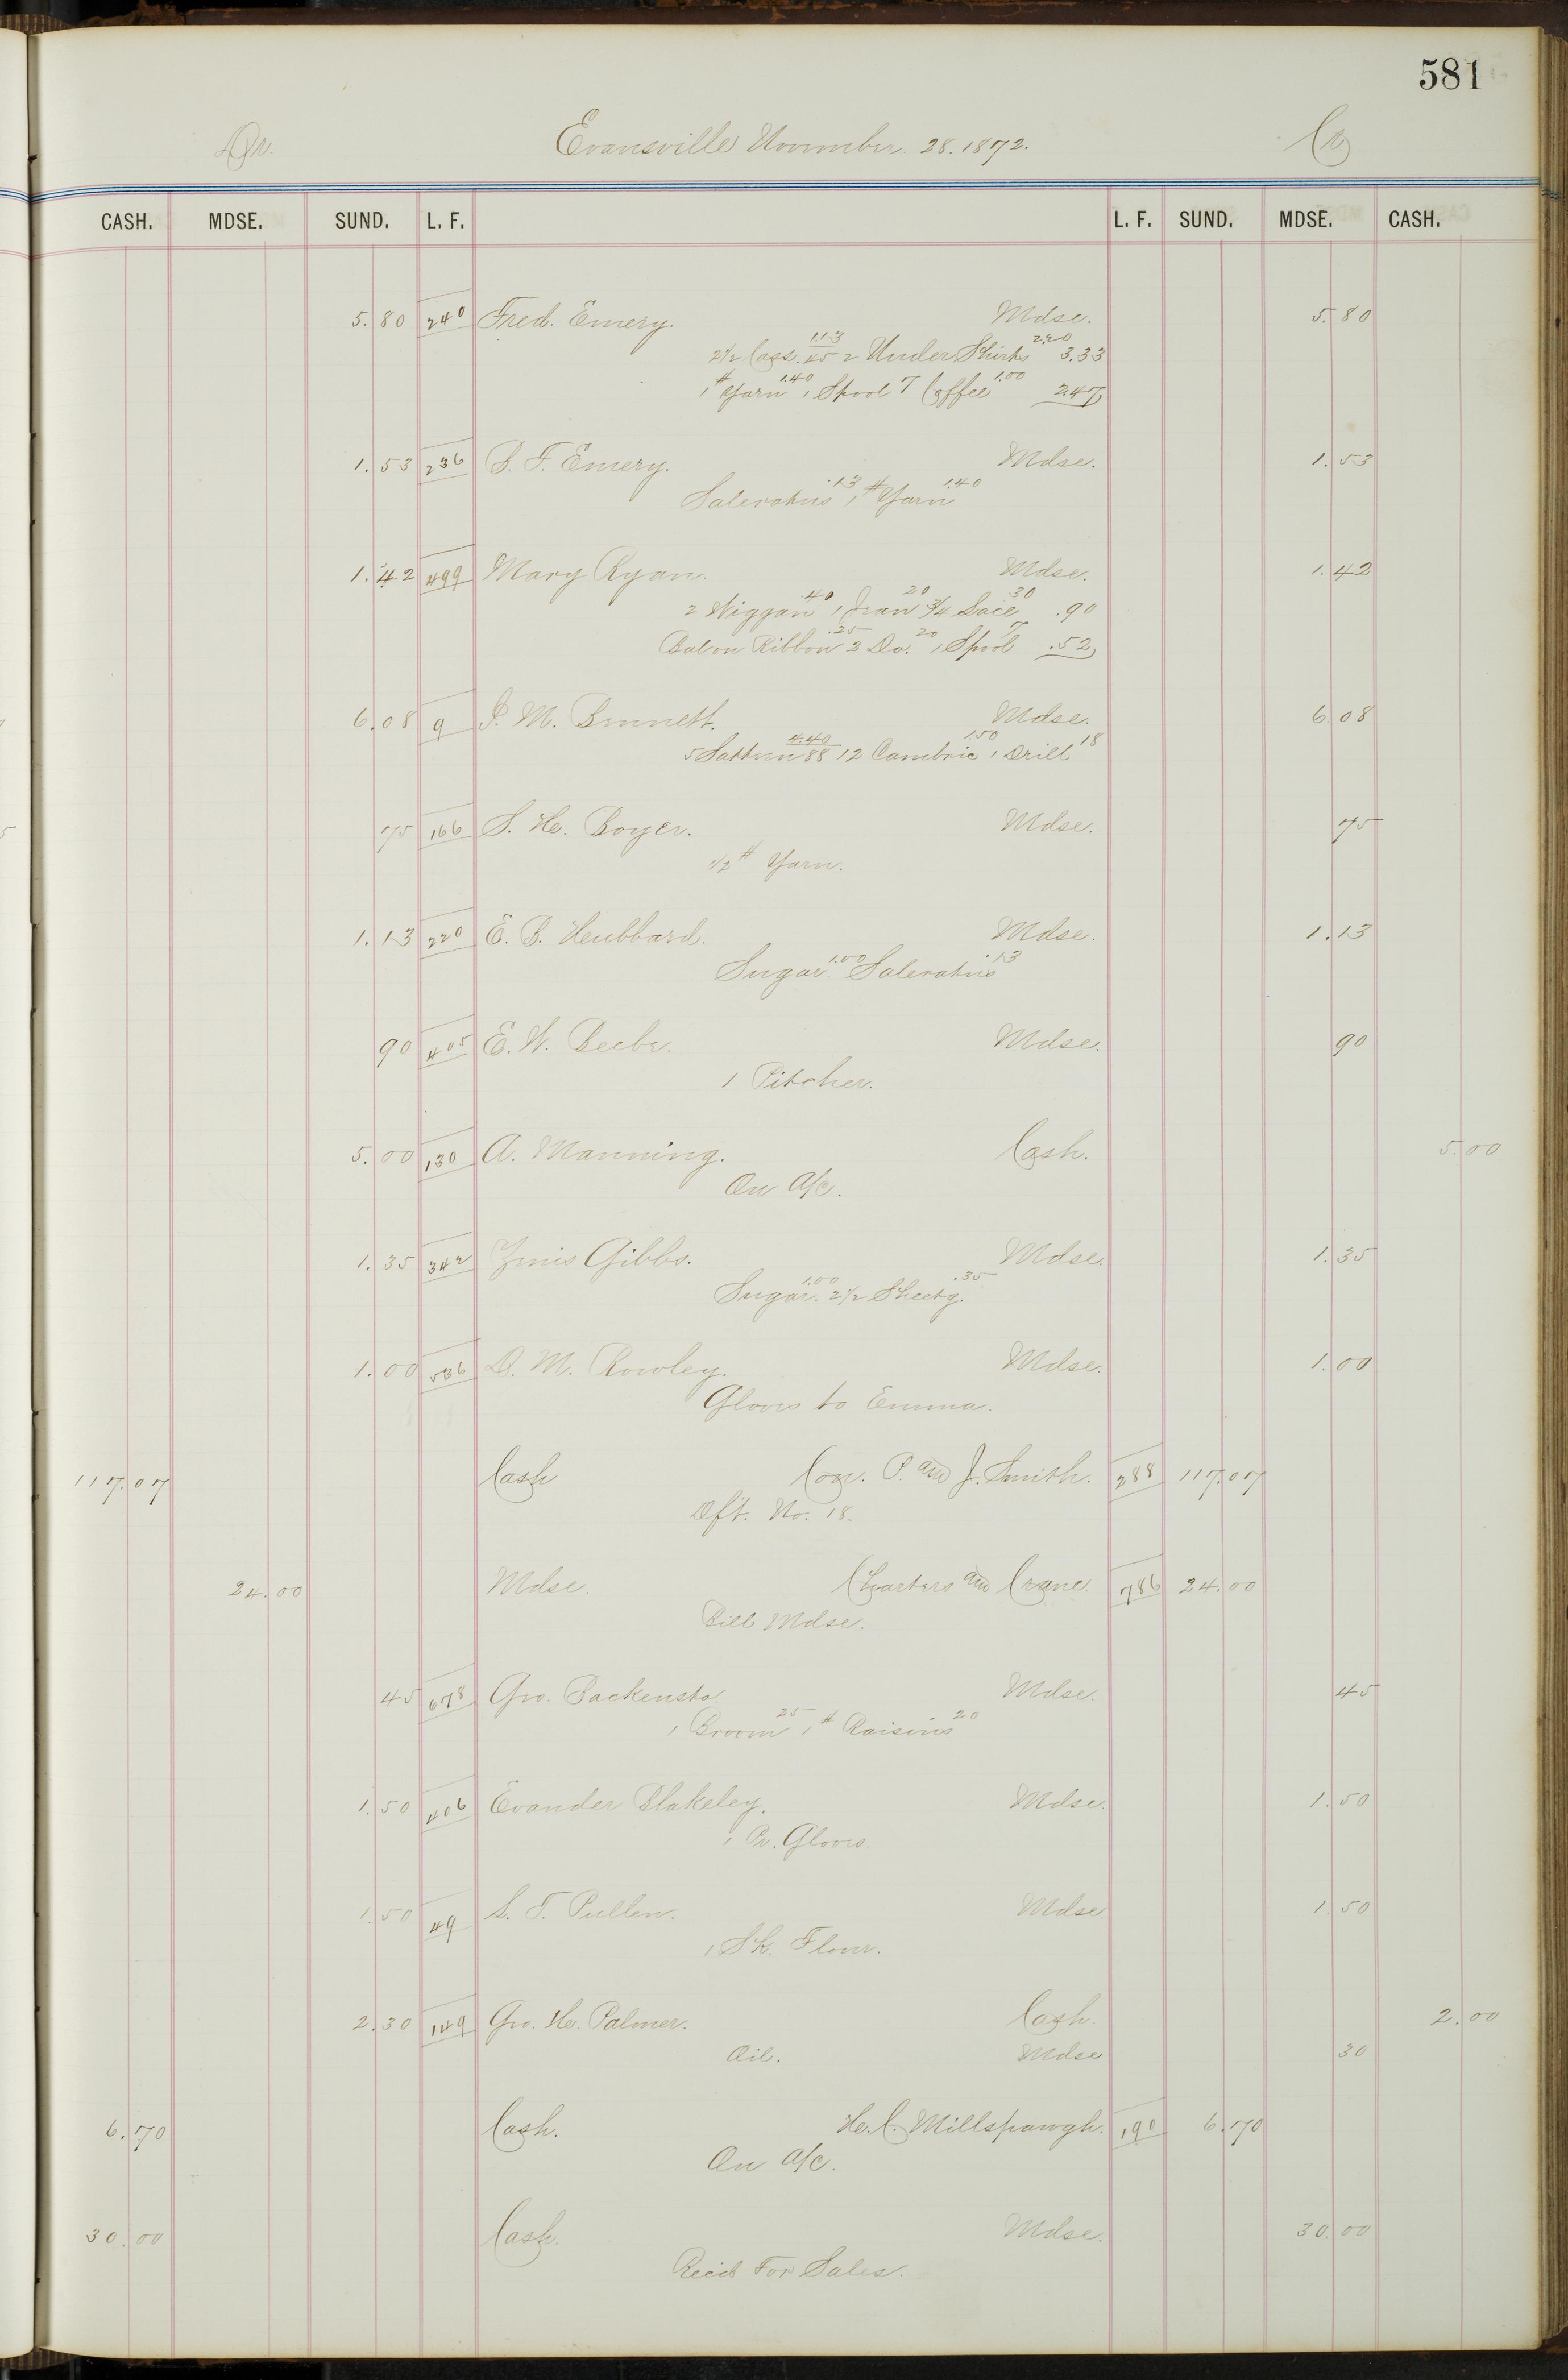 581
Dr. Evansville November. 28. 1872. Cr
CASH. MDSE. SUND. L. F. L. F. SUND. MDSE. CASH.
5.80 240 Fred. Emery. Mdse. 5.80
1.13 2.20
2 1/2 Cass. 45 2 Under Shirts 3.33
1 # Yarn 1.40 1 Spool 7 Coffee 1.00 2.47
1.53 236 B. F. Emery. Mdse. 1.53
Saleratus .13 1 # Yarn 1.40
1.42 499 Mary Ryan. Mdse. 1.42
2 Wiggan .40 1 Jean 20 3/4 Lace 30 .90
Ribbon .25 2 Do. 20 1 Spool 7 .52
6.08 9 I. M. Bennett. Mdse. 6.08
5 4.40 88 12 Cambric 1.50 1 Drill 18
75 166 S. H. Boyer. Mdse. 75
1/2 # Yarn.
1.13 220 E. B. Hubbard. Mdse. 1.13
Sugar 1.00 Saleratus .13
90 405 E. W. Beebe. Mdse. 90
1 Pitcher.
5.00 130 A. Manning. Cash. 5.00
On A/c.
1.35 342 Gibbs. Mdse. 1.35
Sugar. 1.00 2 1/2 Sheetg. .35
1.00 536 D. M. Rowley. Mdse. 1.00
Gloves to Emma.
117.07 Cash Cor. P. and J. Smith. 288 117.07
Dft. No. 18.
24.00 Mdse. Charters and Crane. 786 24.00
Bill Mdse.
45 678 Geo. Backensto. Mdse. 45
1 Broom 25 1 # Raisins 20
1.50 406 Evander Blakeley. Mdse. 1.50
1 Pr. Gloves.
1.50 49 S. F. Pullen. Mdse 1.50
1 Sk. Flour.
2.30 149 Geo. H. Palmer. Cash. 2.00
Oil. Mdse 30
6.70 Cash. H. C. Millspaugh. 190 6.70
On A/c.
30.00 Cash. Mdse. 30.00
Rec'd For Sales.